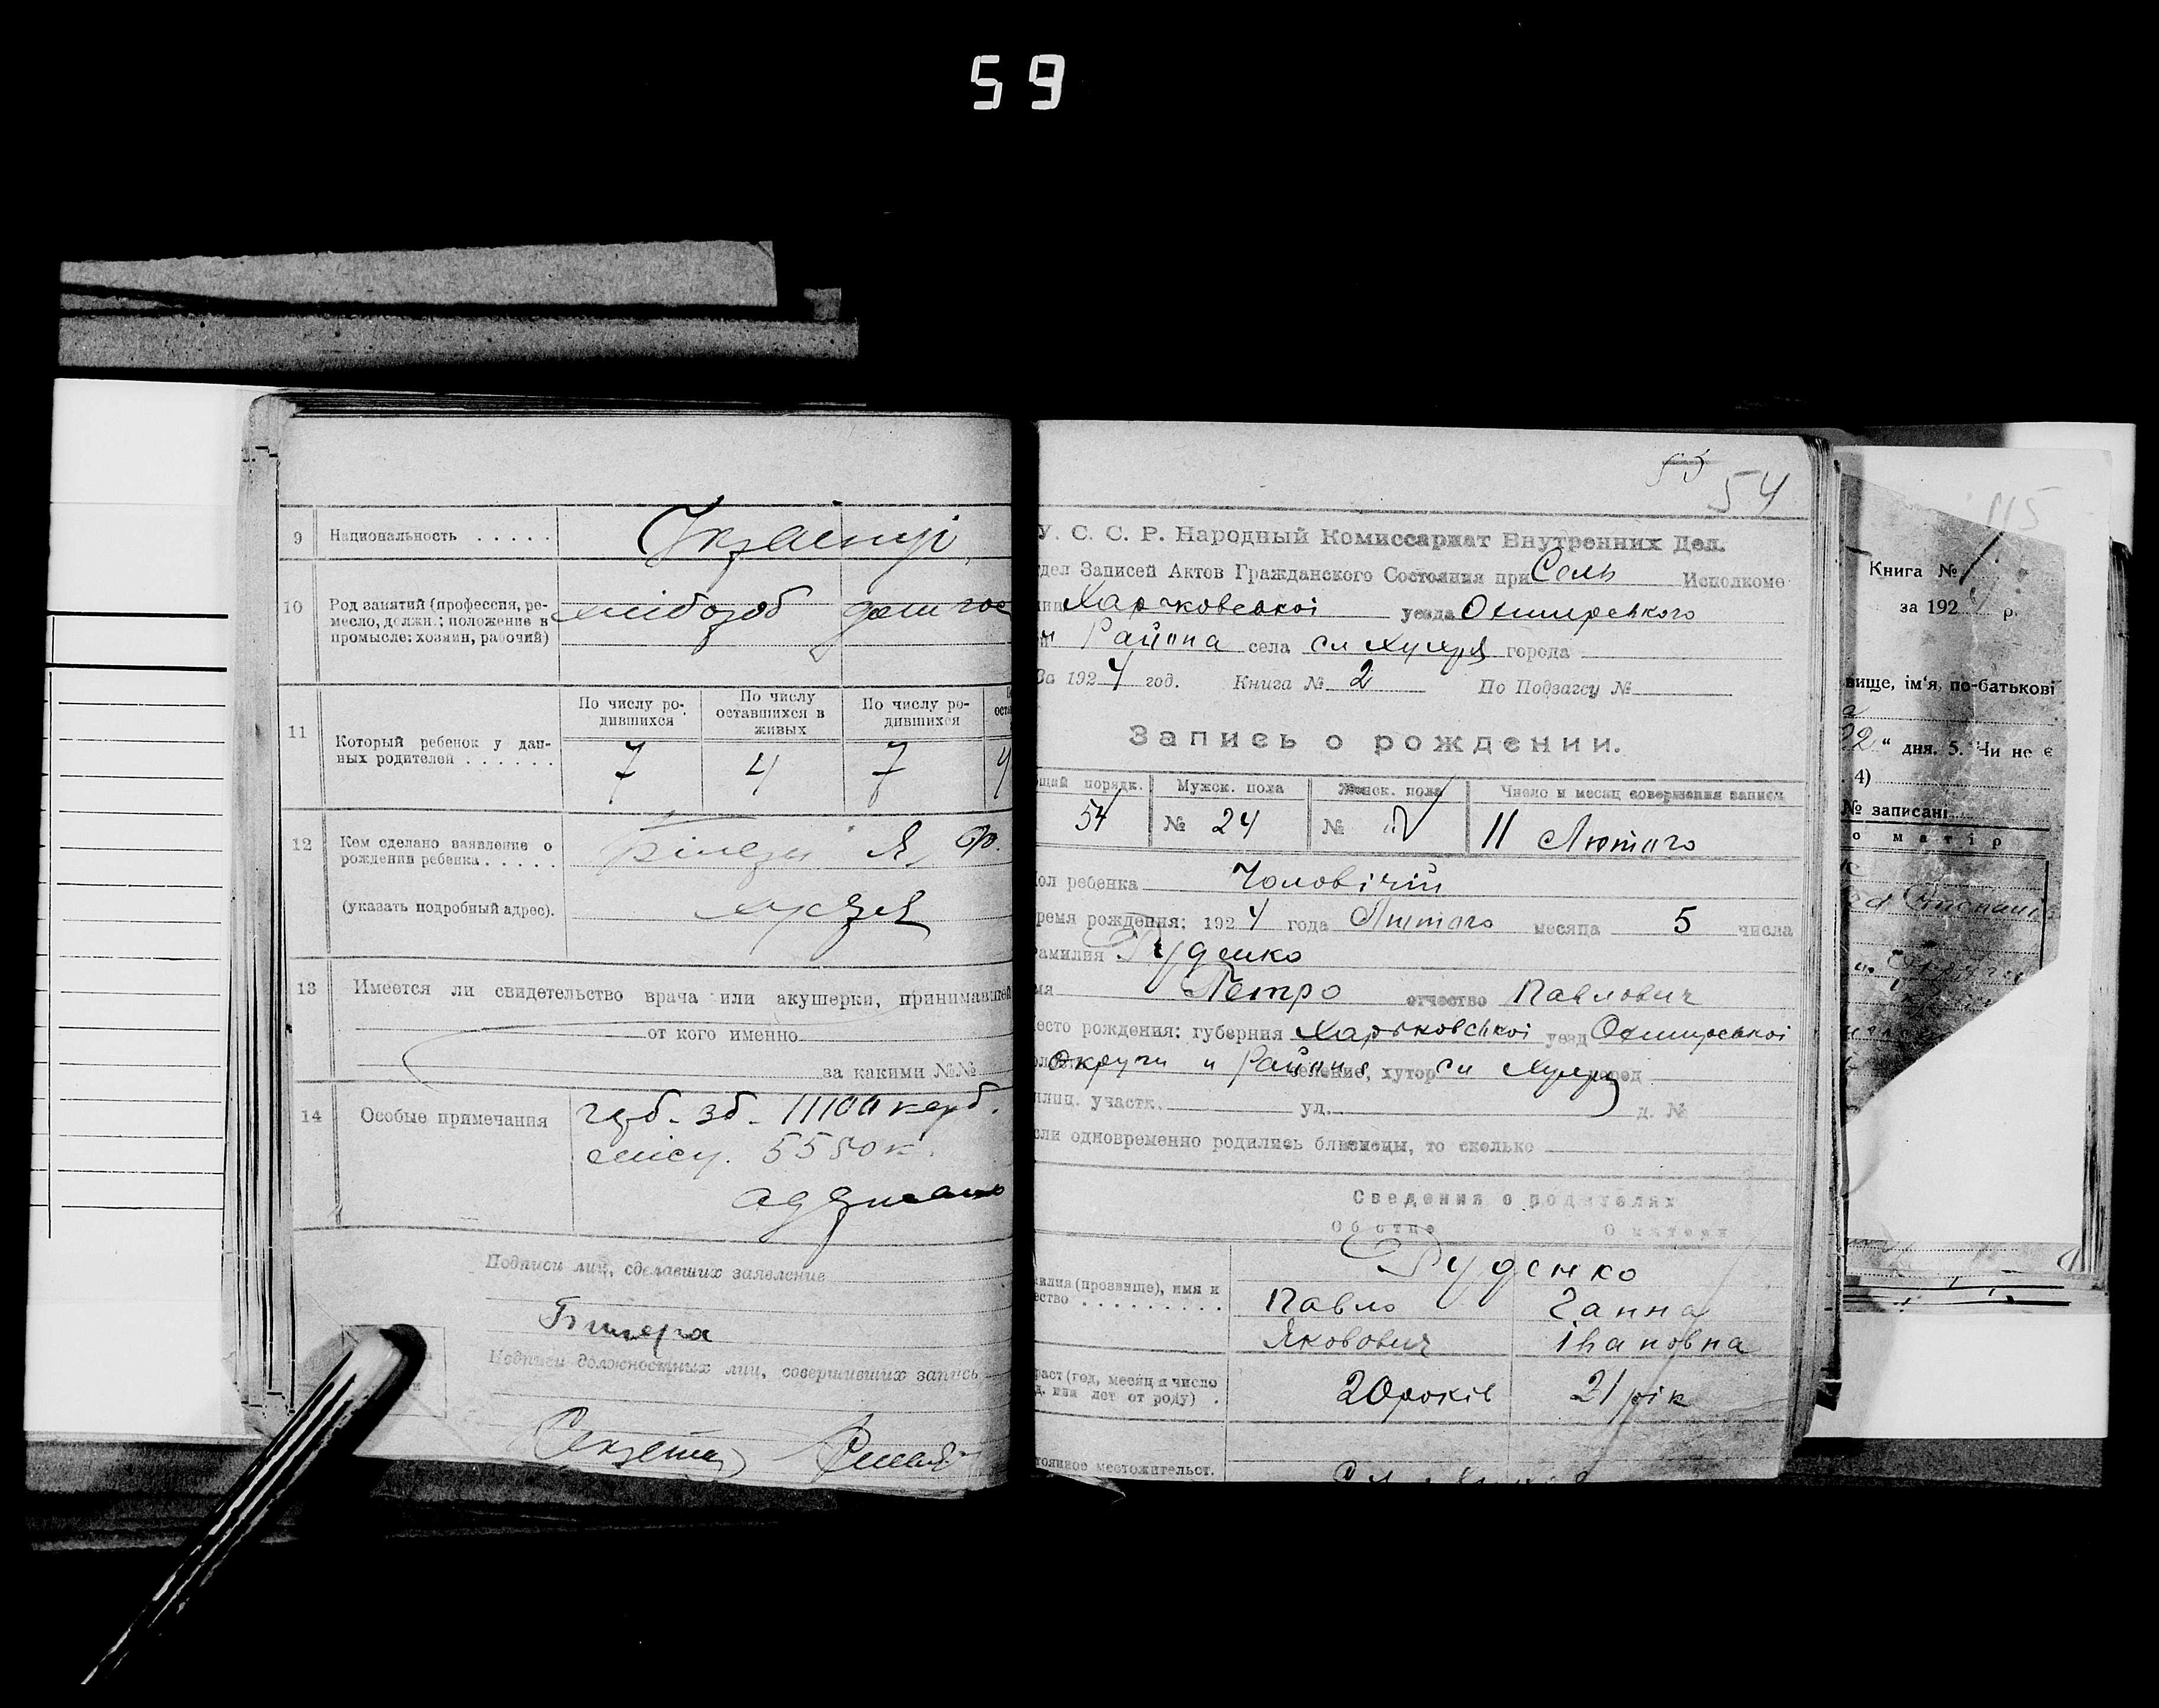 59
9 Национальность . . . . . Українці
10 Род занятий (профессия, ре-
месло, должн.; положение в
промысле: хозяин, рабочий)
хлібороб дом гос
11 Который ребенок у дан-
ных родителей . . . . . .
По числу ро-
дившихся
По числу
оставшихся в
живых
По числу ро-
дившихся
7 4 7 4
12 Кем сделано заявление о
рождении ребенка . . . . .
(указать подробный адрес).
13 Имеется ли свидетельство врача или акушерки, принимавшей
от кого именно
за какими №№
14 Особые примечания
гер. зб. 11100 карб.
5550 к.
Подписи лиц, сделавших заявление
Подписи должностных лиц, совершивших запись
53 54
У. С. С. Р. Народный Комиссариат Внутренних Дел.
дел Записей Актов Гражданского Состояния при Сель Исполкоме
Харьковської уезда Охтирського
Района села сл города
За 1924 год. Книга № 2 По Подзагсу №
Запись о рождении.
щий порядк. Мужск. пола Женск. пола Число и месяц совершения записи
54 № 24 № 11 Лютого
ол ребенка Чоловічий
ремя рождения: 1924 года Лютого месяца 5 числа
амилия Руденко
мя Петро отчество Павлович
есто рождения: губерния Харьковської уезд Охтирської
Округи и Района селение, хутор сл город
лиц. участк. ул. д. №
сли одновременно родились близнецы, то сколько
Сведения о родителях
Об отце О матери
милия (прозвище), имя и
ество . . . . . . . . . .
Руденко
Павло Ганна
Якович Івановна
раст (год, месяц и число
д. или лет от роду) .
20 років 21 рік
тоянное местожительст.
115
Книга № 1
за 1924 р.
вище, ім'я, по-батькові
22 " дня. 5. Чи не є
. 4)
№ записані
о матір